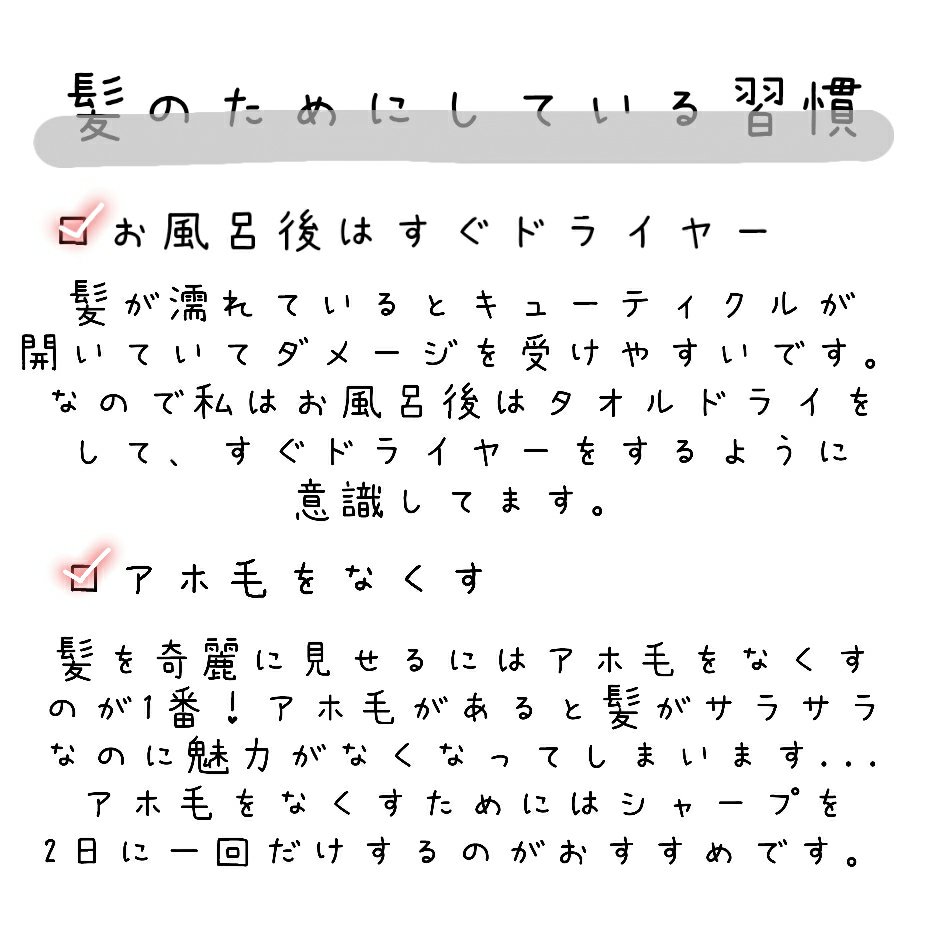 髪のためにしている習慣
お風呂後はすぐドライヤー
髪が濡れているとキューティクルが
開いていてダメージを受けやすいです。
なので私はお風呂後はタオルドライを
して、すぐドライヤーをするように
意識してます。
アホ毛をなくす
髪を奇麗に見せるにはアホ毛をなくす
のが1番！アホ毛があると髪がサラサラ
なのに魅力がなくなってしまいます...
アホ毛をなくすためにはシャープを
2日に一回だけするのがおすすめです。